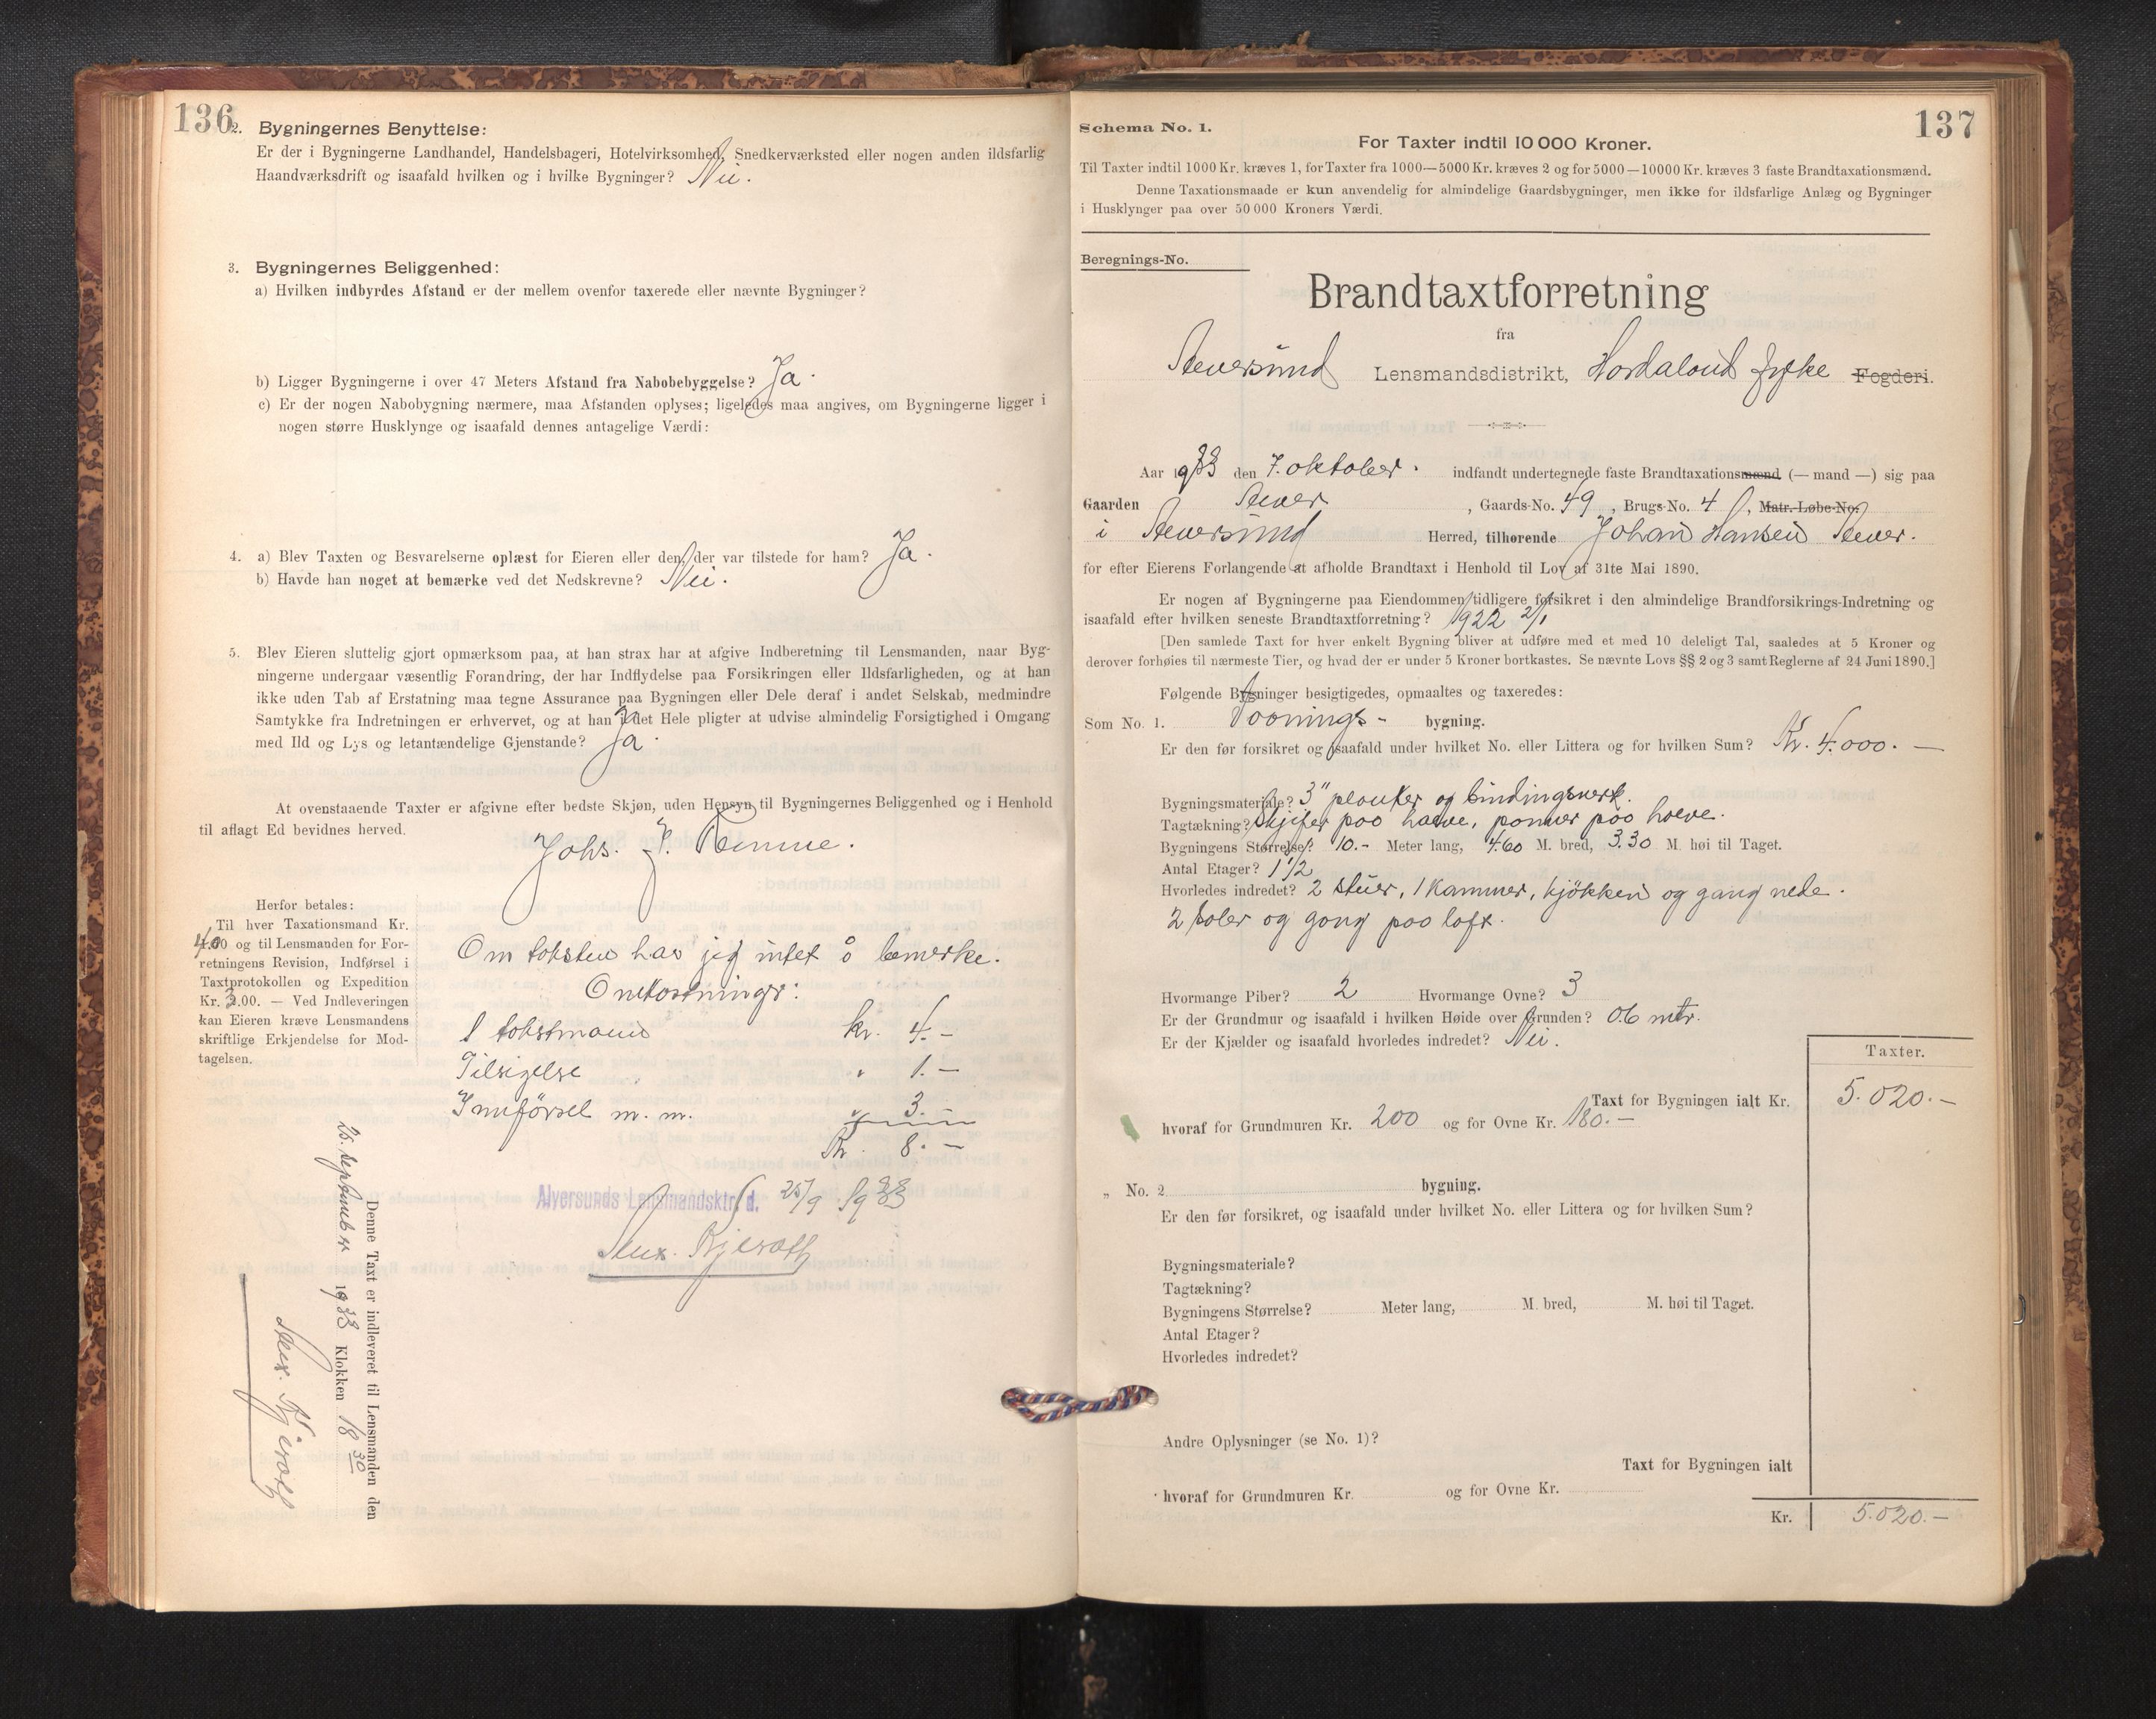 136
2. Bygningernes Benyttelse:
Er der i Bygningerne Landhandel, Handelsbageri, Hotelvirksomhed, Snedkerværksted eller nogen anden ildsfarlig
Haandværksdrift og isaafald hvilken og i hvilke Bygninger? Nei.
3. Bygningernes Beliggenhed:
a) Hvilken indbyrdes Afstand er der mellem ovenfor taxerede eller nævnte Bygninger?
b) Ligger Bygningerne i over 47 Meters Afstand fra Nabobebyggelse? Ja.
c) Er der nogen Nabobygning nærmere, maa Afstanden oplyses; ligeledes maa angives, om Bygningerne ligger i
nogen større Husklynge og isaafald dennes antagelige Værdi:
4. a) Blev Taxten og Besvarelserne oplæst for Eieren eller den, der var tilstede for ham? Ja.
b) Havde han noget at bemærke ved det Nedskrevne? Nei.
5. Blev Eieren sluttelig gjort opmærksom paa, at han strax har at afgive Indberetning til Lensmanden, naar Byg-
ningerne undergaar væsentlig Forandring, der har Indflydelse paa Forsikringen eller Ildsfarligheden, og at han
ikke uden Tab af Erstatning maa tegne Assurance paa Bygningen eller Dele deraf i andet Selskab, medmindre
Samtykke fra Indretningen er erhvervet, og at han i det Hele pligter at udvise almindelig Forsigtighed i Omgang
med Ild og Lys og letantændelige Gjenstande? Ja.
At ovenstaaende Taxter er afgivne efter bedste Skjøn, uden Hensyn til Bygningernes Beliggenhed og i Henhold
til aflagt Ed bevidnes herved.
Johs. J. Remme.
Herfor betales:
Til hver Taxationsmand Kr.
4.00 og til Lensmanden for For-
retningens Revision, Indførsel i
Taxtprotokollen og Expedition
Kr. 3.00. — Ved Indleveringen
kan Eieren kræve Lensmandens
skriftlige Erkjendelse for Mod-
tagelsen.
Om taksten har jeg intet å bemerke.
Omkostninger:
1 takstmann kr. 4.-
Tilsigelse " 1.-
Innförsel m. m. " 3.-
Kr. 8.-
Alversunds Lensmandsktr. d. 25/9 1933
Alex. Kjerath
Denne Taxt er indleveret til Lensmanden den
25. september 1933 Klokken 18 30
Alex. Kjerath
137
Schema No. 1.
For Taxter indtil 10 000 Kroner.
Til Taxter indtil 1000 Kr. kræves 1, for Taxter fra 1000—5000 Kr. kræves 2 og for 5000—10000 Kr. kræves 3 faste Brandtaxationsmænd.
Denne Taxationsmaade er kun anvendelig for almindelige Gaardsbygninger, men ikke for ildsfarlige Anlæg og Bygninger
i Husklynger paa over 50 000 Kroners Værdi.
Beregnings-No.
Brandtaxtforretning
fra
Alversund Lensmandsdistrikt, Hordaland fylke Fogderi.
Aar 1933 den 7. oktober. indfandt undertegnede faste Brandtaxationsmænd (— mand —) sig paa
Gaarden Alver , Gaards-No. 49 , Brugs-No. 4 , Matr.-Løbe-No.
i Alversund Herred, tilhørende Johan Hansen Alver.
for efter Eierens Forlangende at afholde Brandtaxt i Henhold til Lov af 31te Mai 1890.
Er nogen af Bygningerne paa Eiendommen tidligere forsikret i den almindelige Brandforsikrings-Indretning og
isaafald efter hvilken seneste Brandtaxtforretning? 1922 2/1
[Den samlede Taxt for hver enkelt Bygning bliver at udføre med et med 10 deleligt Tal, saaledes at 5 Kroner og
derover forhøies til nærmeste Tier, og hvad der er under 5 Kroner bortkastes. Se nævnte Lovs §§ 2 og 3 samt Reglerne af 24 Juni 1890.]
Følgende Bygninger besigtigedes, opmaaltes og taxeredes:
Som No. 1. Vaanings- bygning.
Er den før forsikret og isaafald under hvilket No. eller Littera og for hvilken Sum? Kr. 4.000.—
Bygningsmateriale? 3" planker og bindingsverk.
Tagtækning? Skjifer paa halve, panner paa halve.
Bygningens Størrelse? 10.- Meter lang, 4.60 M. bred, 3.30 M. høi til Taget.
Antal Etager? 1 1/2
Hvorledes indredet? 2 stuer, 1 kammer, kjökken og gang nede.
2 saler og gang paa loft.
Hvormange Piber? 2 Hvormange Ovne? 3
Er der Grundmur og isaafald i hvilken Høide over Grunden? 0.6 mtr.
Er der Kjælder og isaafald hvorledes indredet? Nei.
Taxter.
Taxt for Bygningen ialt Kr. 5.020.-
hvoraf for Grundmuren Kr. 200 og for Ovne Kr. 180.-
„ No. 2 bygning.
Er den før forsikret, og isaafald under hvilket No. eller Littera og for hvilken Sum?
Bygningsmateriale?
Tagtækning?
Bygningens Størrelse? Meter lang, M. bred, M. høi til Taget.
Antal Etager?
Hvorledes indredet?
Andre Oplysninger (se No. 1)?
Taxt for Bygningen ialt
hvoraf for Grundmuren Kr. og for Ovne Kr.
Kr. 5.020.-